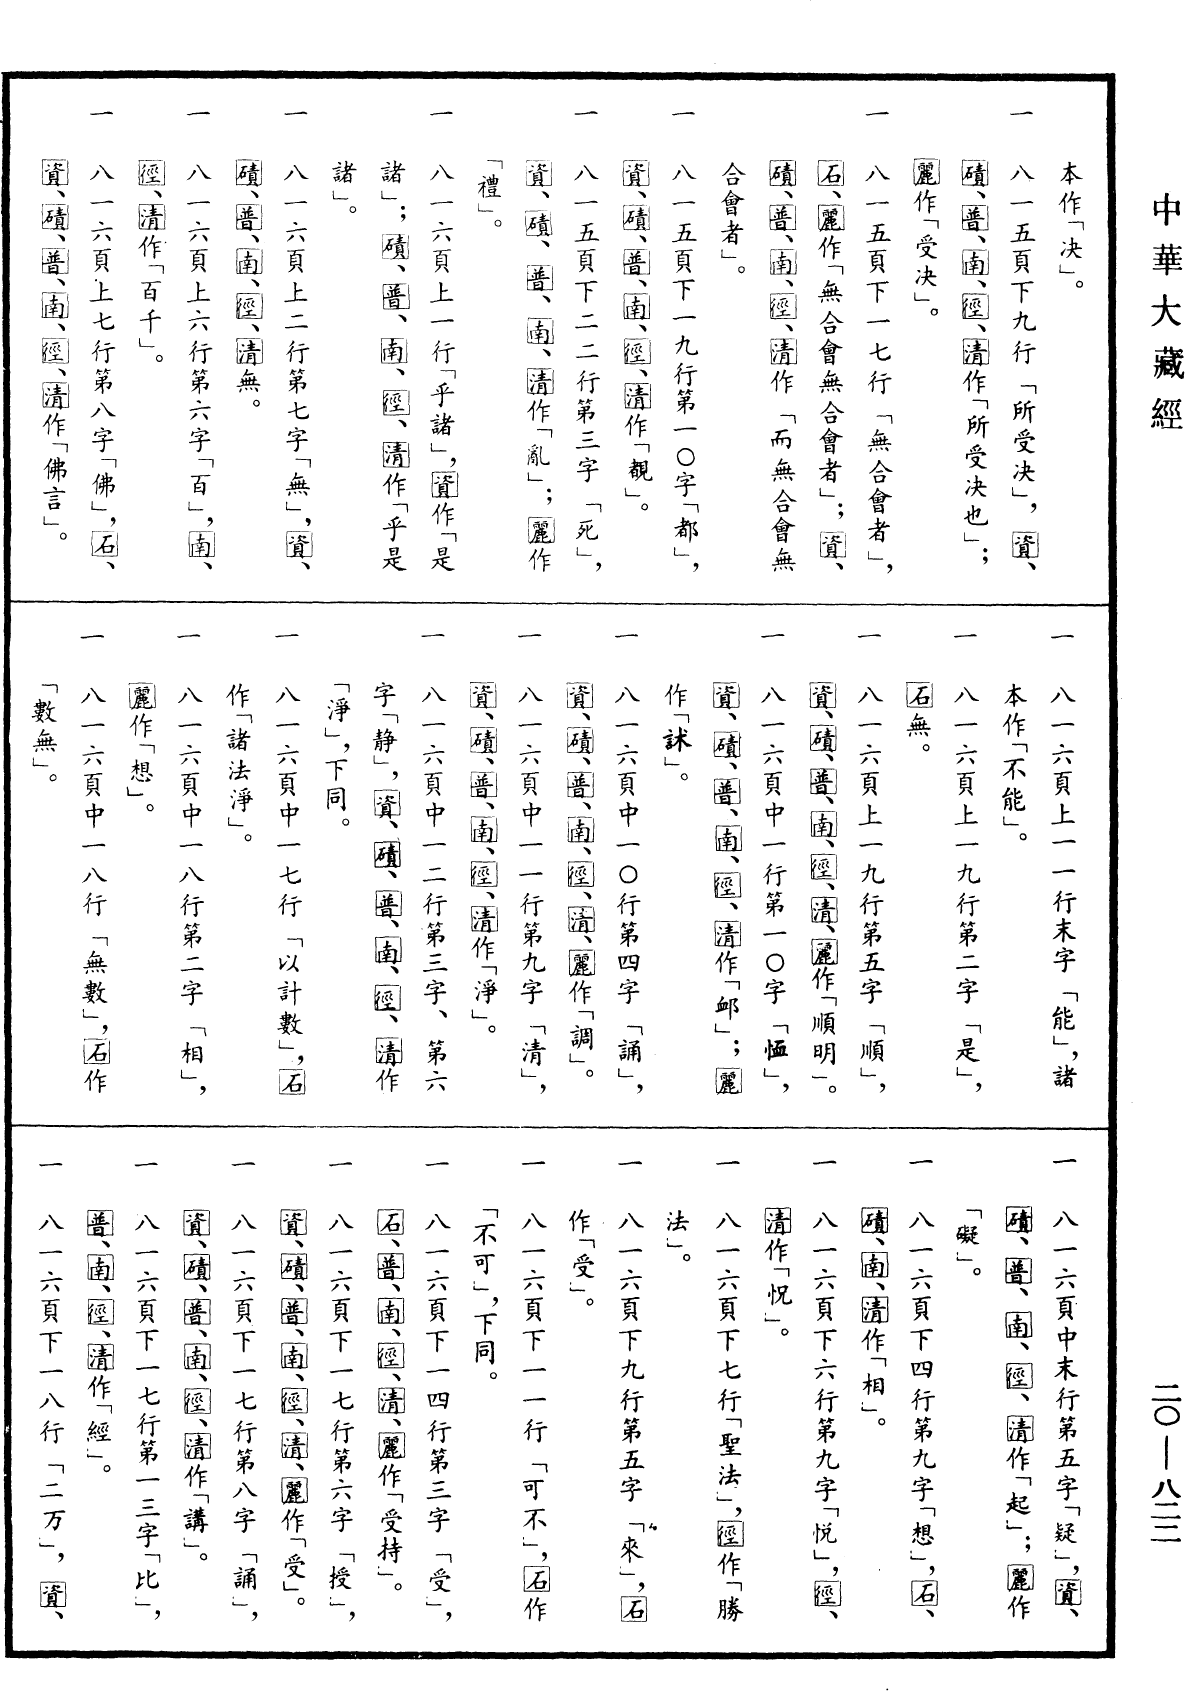 中華大藏經
二〇—八二二
本作「决」。
一 八一五頁下九行「所受决」，資、
磧、普、南、徑、清作「所受决也」；
麗作「受决」。
一 八一五頁下一七行「無合會者」，
石、麗作「無合會無合會者」；資、
磧、普、南、徑、清作「而無合會無
合會者」。
一 八一五頁下一九行第一〇字「都」，
資、磧、普、南、徑、清作「覩」。
一 八一五頁下二二行第三字「死」，
資、磧、普、南、清作「亂」；麗作
「禮」。
一 八一六頁上一行「乎諸」，資作「是
諸」；磧、普、南、徑、清作「乎是
諸」。
一 八一六頁上二行第七字「無」，資、
磧、普、南、徑、清無。
一 八一六頁上六行第六字「百」，南、
徑、清作「百千」。
一 八一六頁上七行第八字「佛」，石、
資、磧、普、南、徑、清作「佛言」。
一 八一六頁上一一行末字「能」，諸
本作「不能」。
一 八一六頁上一九行第二字「是」，
石無。
一 八一六頁上一九行第五字「順」，
資、磧、普、南、徑、清、麗作「順明」。
一 八一六頁中一行第一〇字「恤」，
資、磧、普、南、徑、清作「卹」；麗
作「訹」。
一 八一六頁中一〇行第四字「誦」，
資、磧、普、南、徑、清、麗作「調」。
一 八一六頁中一一行第九字「清」，
資、磧、普、南、徑、清作「淨」。
一 八一六頁中一二行第三字、第六
字「静」，資、磧、普、南、徑、清作
「淨」，下同。
一 八一六頁中一七行「以計數」，石
作「諸法淨」。
一 八一六頁中一八行第二字「相」，
麗作「想」。
一 八一六頁中一八行「無數」，石作
「數無」。
一 八一六頁中末行第五字「疑」，資、
磧、普、南、徑、清作「起」；麗作
「礙」。
一 八一六頁下四行第九字「想」，石、
磧、南、清作「相」。
一 八一六頁下六行第九字「悦」，徑、
清作「怳」。
一 八一六頁下七行「聖法」，徑作「勝
法」。
一 八一六頁下九行第五字「來」，石
作「受」。
一 八一六頁下一一行「可不」，石作
「不可」，下同。
一 八一六頁下一四行第三字「受」，
石、普、南、徑、清、麗作「受持」。
一 八一六頁下一七行第六字「授」，
資、磧、普、南、徑、清、麗作「受」。
一 八一六頁下一七行第八字「誦」，
資、磧、普、南、徑、清作「講」。
一 八一六頁下一七行第一三字「比」，
普、南、徑、清作「經」。
一 八一六頁下一八行「二万」，資、